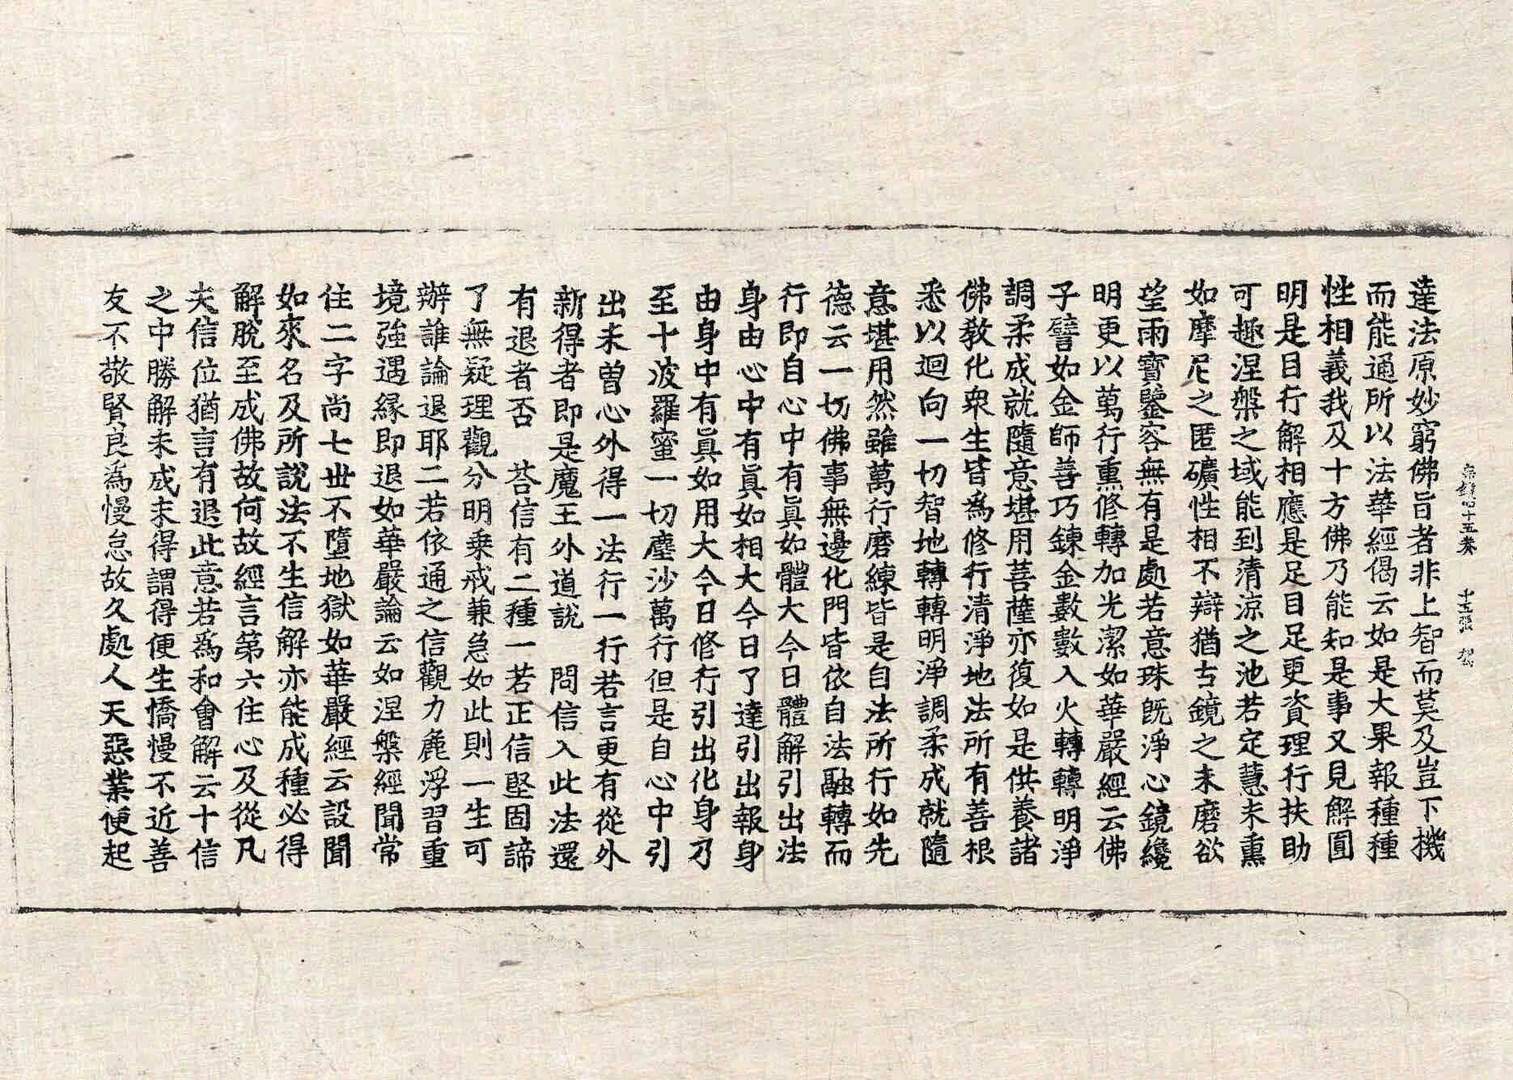 宗鏡十五卷 十五張 
達法原妙窮佛旨者非上智而莫及豈下機
而能通所以法華經偈云如是大果報種種
性相義我及十方佛乃能知是事又見解圓
明是目行解相應是足目足更資理行扶助
可趣涅槃之域能到清涼之池若定慧未熏
如摩尼之匿礦性相不辯猶古鏡之未磨欲
望雨寶鑒容無有是處若意珠旣淨心鏡纔
明更以萬行熏修轉加光潔如華嚴經云佛
子譬如金師善巧鍊金數數入火轉轉明淨
調柔成就隨意堪用菩薩亦復如是供養諸
佛敎化衆生皆爲修行清淨地法所有善根
悉以迴向一切智地轉轉明淨調柔成就隨
意堪用然雖萬行磨練皆是自法所行如先
德云一切佛事無邊化門皆依自法融轉而
行卽自心中有眞如體大今日體解引出法
身由心中有眞如相大今日了達引出報身
由身中有眞如用大今日修行引出化身乃
至十波羅蜜一切塵沙萬行但是自心中引
出未曾心外得一法行一行若言更有從外
新得者卽是魔王外道說 問信入此法還
有退者否 荅信有二種一若正信堅固諦
了無疑理觀分明乗戒兼急如此則一生可
辦誰論退耶二若依通之信觀力麁浮習重
境強遇緣卽退如華嚴論云如涅槃經聞常
住二字尚七世不墮地獄如華嚴經云設聞
如來名及所說法不生信解亦能成種必得
解脫至成佛故何故經言第六住心及從凡
夫信位猶言有退此意若爲和會解云十信
之中勝解未成未得謂得便生憍慢不近善
友不敬賢良爲慢怠故久處人天惡業便起